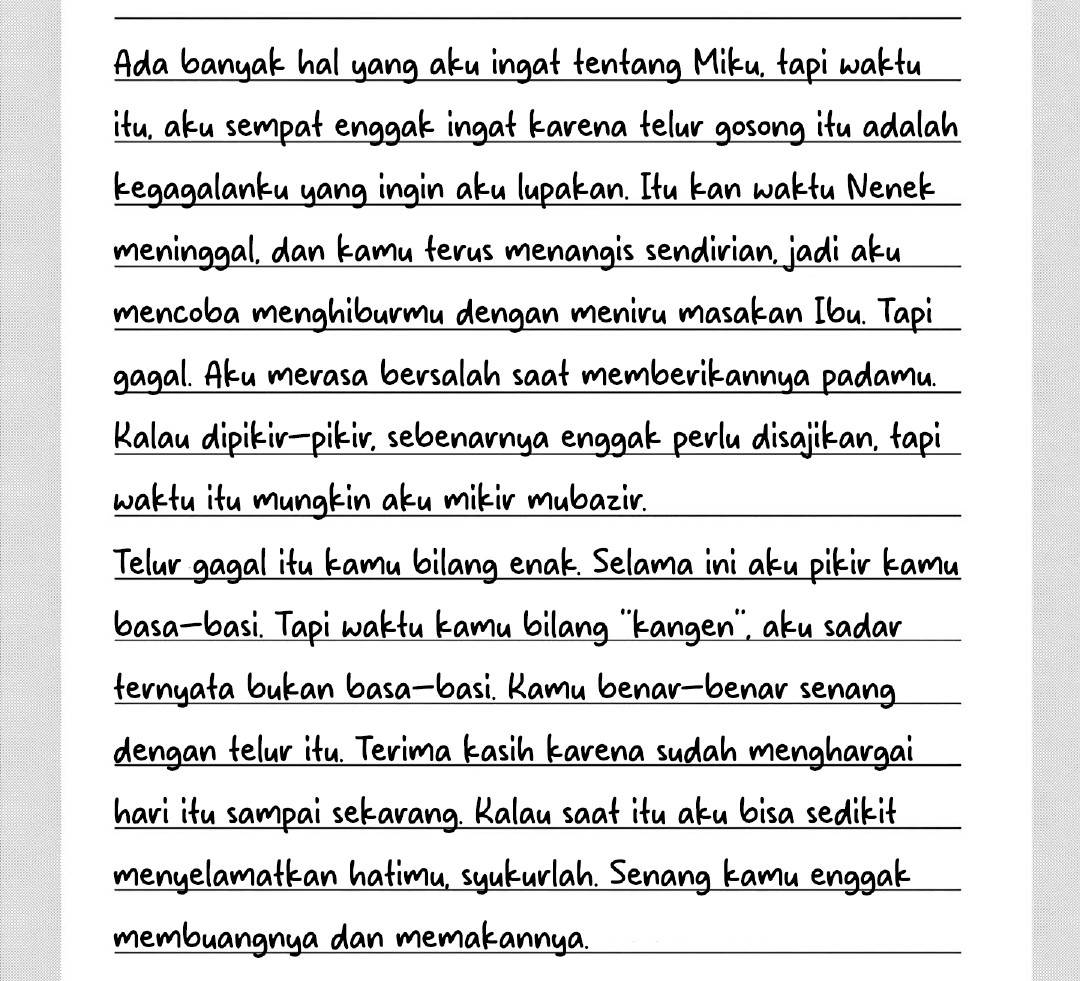 Ada banyak hal yang aku ingat tentang Miku, tapi waktu
itu, aku sempat enggak ingat karena telur gosong itu adalah
kegagalanku yang ingin aku lupakan. Itu kan waktu Nenek
meninggal, dan kamu terus menangis sendirian, jadi aku
mencoba menghiburmu dengan meniru masakan Ibu. Tapi
gagal. Aku merasa bersalah saat memberikannya padamu.
Kalau dipikir-pikir, sebenarnya enggak perlu disajikan, tapi
waktu itu mungkin aku mikir mubazir.
Telur gagal itu kamu bilang enak. Selama ini aku pikir kamu
basa-basi. Tapi waktu kamu bilang "kangen", aku sadar
ternyata bukan basa-basi. Kamu benar-benar senang
dengan telur itu. Terima kasih karena sudah menghargai
hari itu sampai sekarang. Kalau saat itu aku bisa sedikit
menyelamatkan hatimu, syukurlah. Senang kamu enggak
membuangnya dan memakannya.